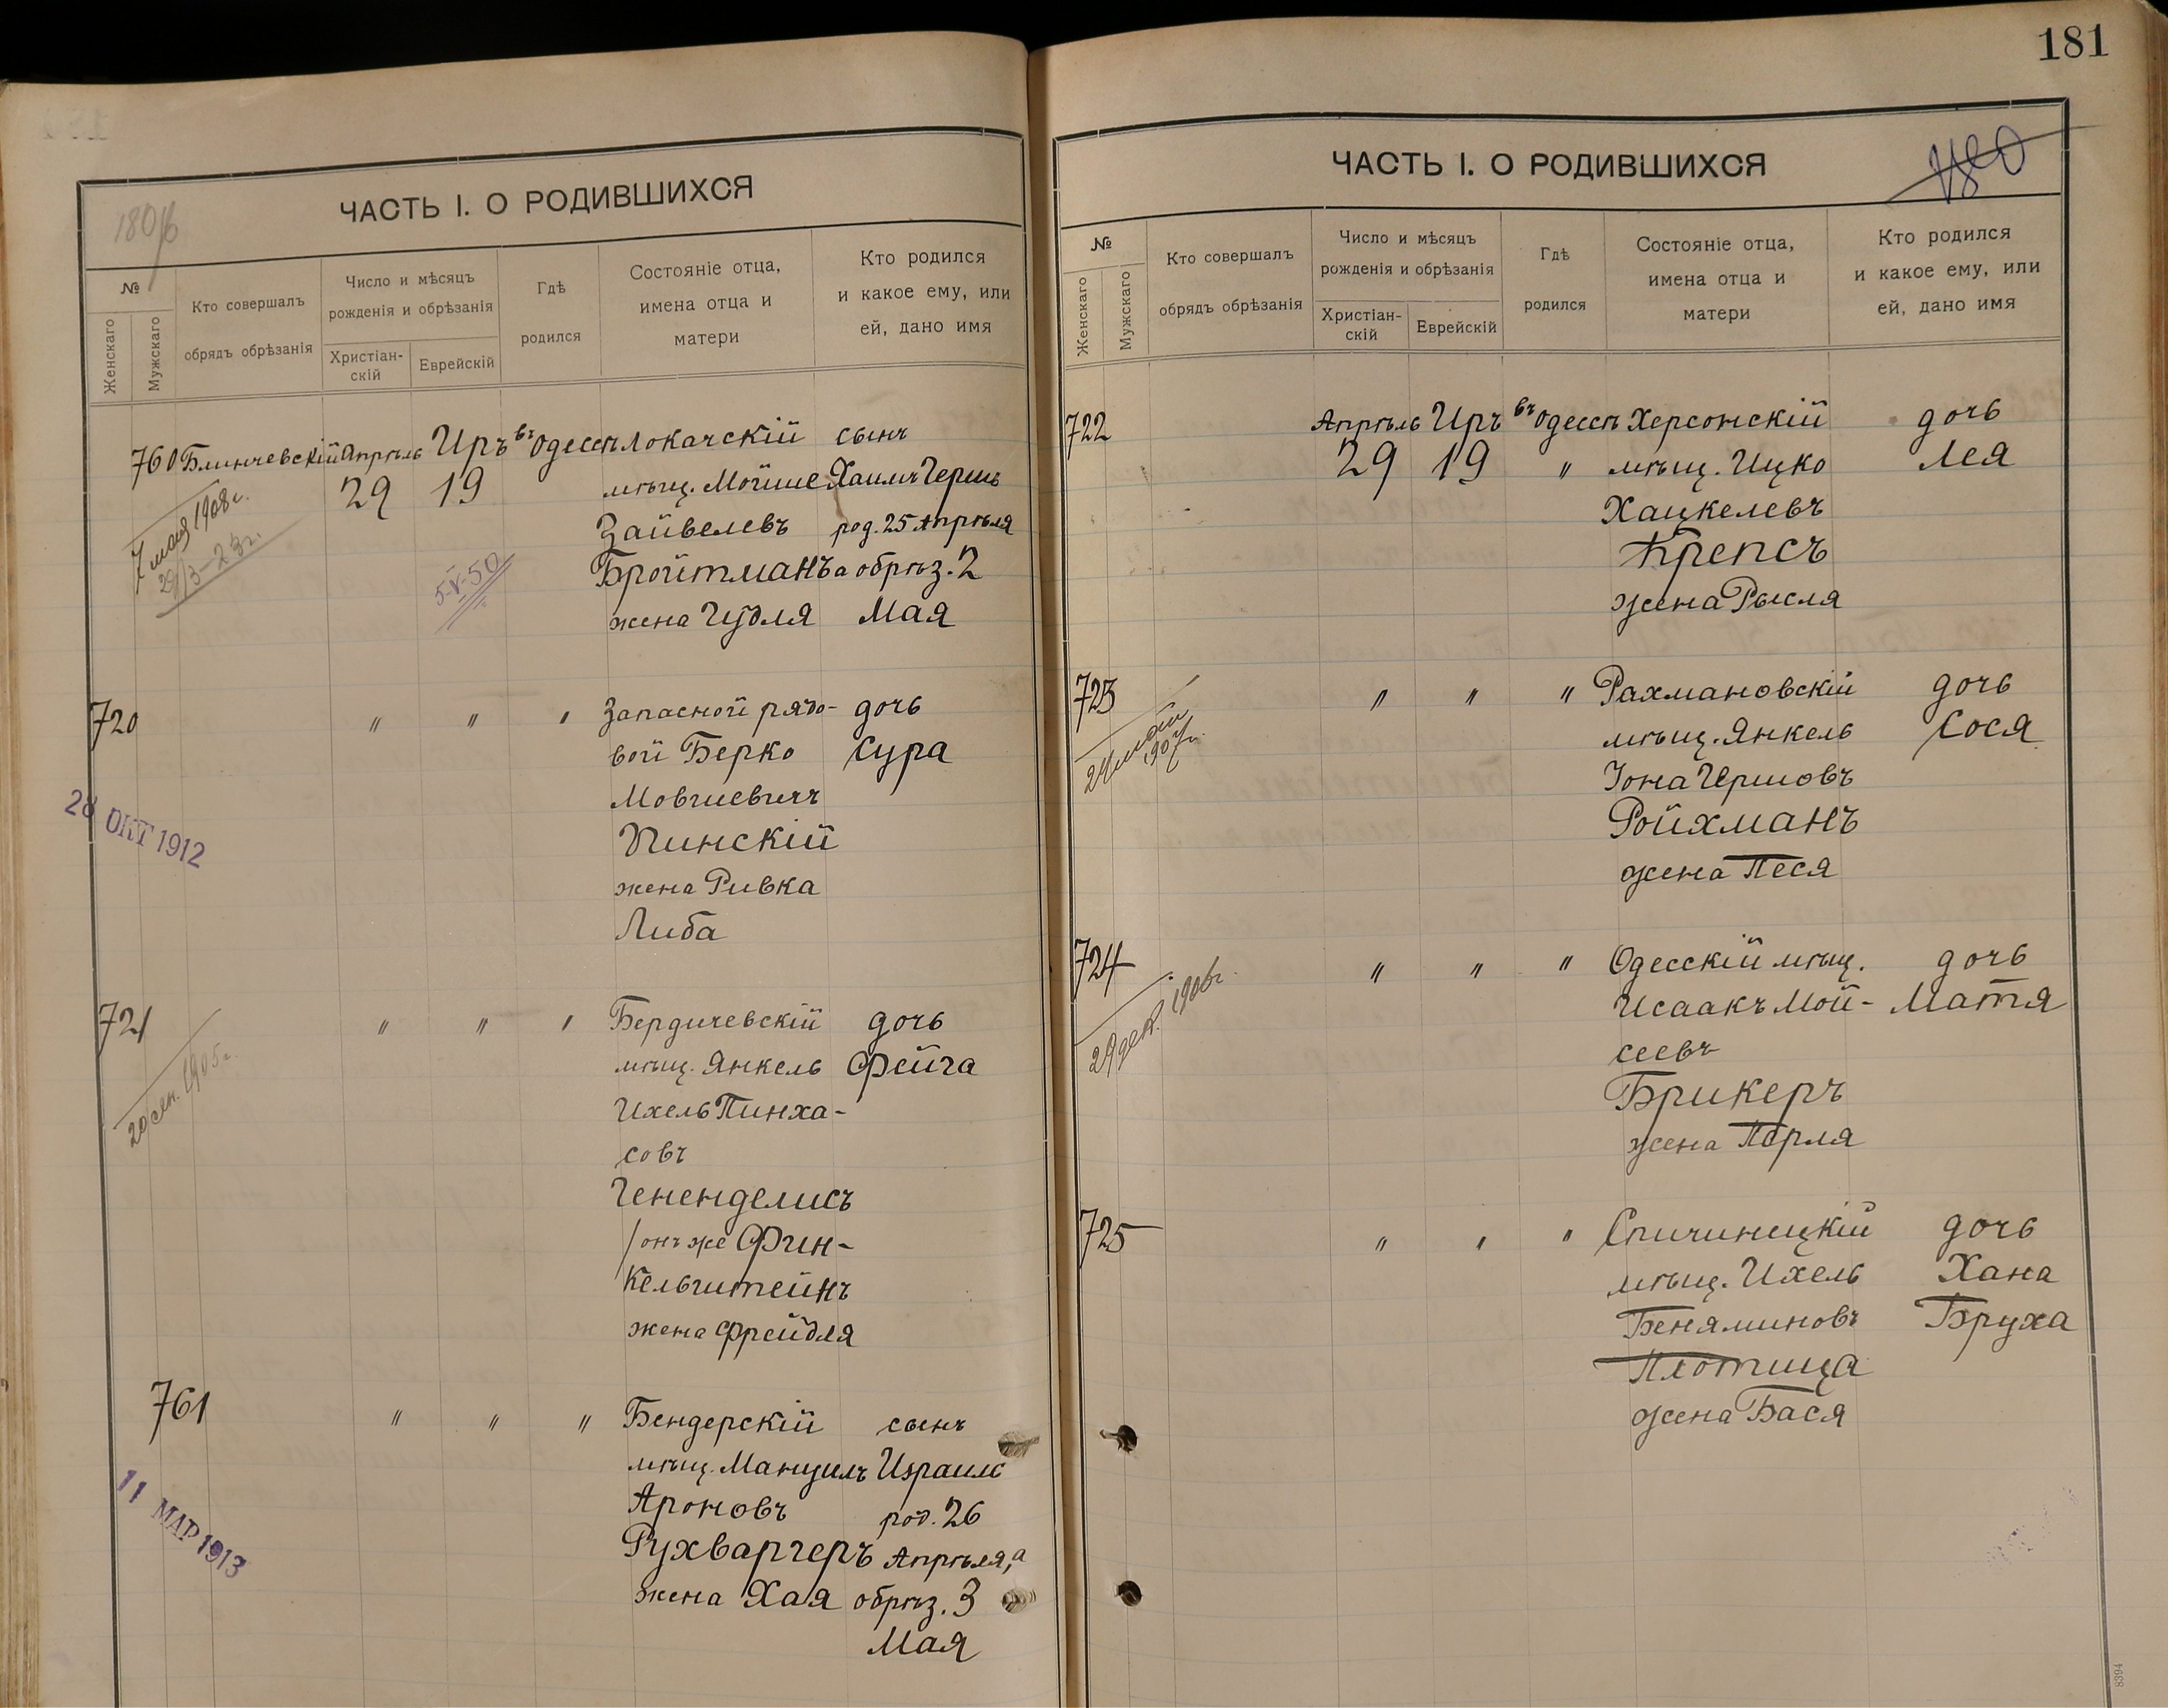 181
ЧАСТЬ I. О РОДИВШИХСЯ
180/6
№
Женскаго
Мужскаго
Кто совершалъ
обрядъ обрѣзанія
Число и мѣсяцъ
рожденія и обрѣзанія
Христіан-
скій
Еврейскій
Гдѣ
родился
Состояніе отца,
имена отца и
матери
Кто родился
и какое ему, или
ей, дано имя
760 Блинчевскій Апрѣль Иръ въ Одессѣ Локачскій сынъ
29 19 мѣщ. Мойше Хаимъ Герш
7 мая 1908 г.
Зайвелевъ род. 25 Апрѣля
5-V-50
Бройтманъ а обрѣз. 2
жена Гудля Мая
720 " " " Запасной рядо- дочь
вой Берко Сура
Мовшевичъ
28 ОКТ 1912
Пинскій
жена Ривка
Либа
721 " " " Бердичевскій дочь
мѣщ. Янкель Фейга
20 1905 г.
Ихель Пинха-
совъ
Гененделисъ
/онъ же Фин-
кельштейнъ
жена Фрейдля
761 " " " Бендерскій сынъ
мѣщ. Мануилъ Израиль
11 МАР 1913
Ароновъ род. 26
Рухваргеръ Апрѣля, а
жена Хая обрѣз. 3
Мая
ЧАСТЬ I. О РОДИВШИХСЯ
180
№
Женскаго
Мужскаго
Кто совершалъ
обрядъ обрѣзанія
Число и мѣсяцъ
рожденія и обрѣзанія
Христіан-
скій
Еврейскій
Гдѣ
родился
Состояніе отца,
имена отца и
матери
Кто родился
и какое ему, или
ей, дано имя
722 Апрѣль Иръ въ Одессѣ Херсонскій дочь
29 19 " мѣщ. Ицко Лея
Хацкелевъ
Крепсъ
жена Рысля
723 " " " Рахмановскій дочь
мѣщ. Янкель Сося
1907 г.
Іона Гершовъ
Ройхманъ
жена Песя
724 " " " Одесскій мѣщ. дочь
Исаакъ Мой- Матя
29 дек. 1906 г.
сеевъ
Брикеръ
жена Перля
725 " " " Спичинецкій дочь
мѣщ. Ихель Хана
Беняминовъ Бруха
Плотица
жена Бася
8394